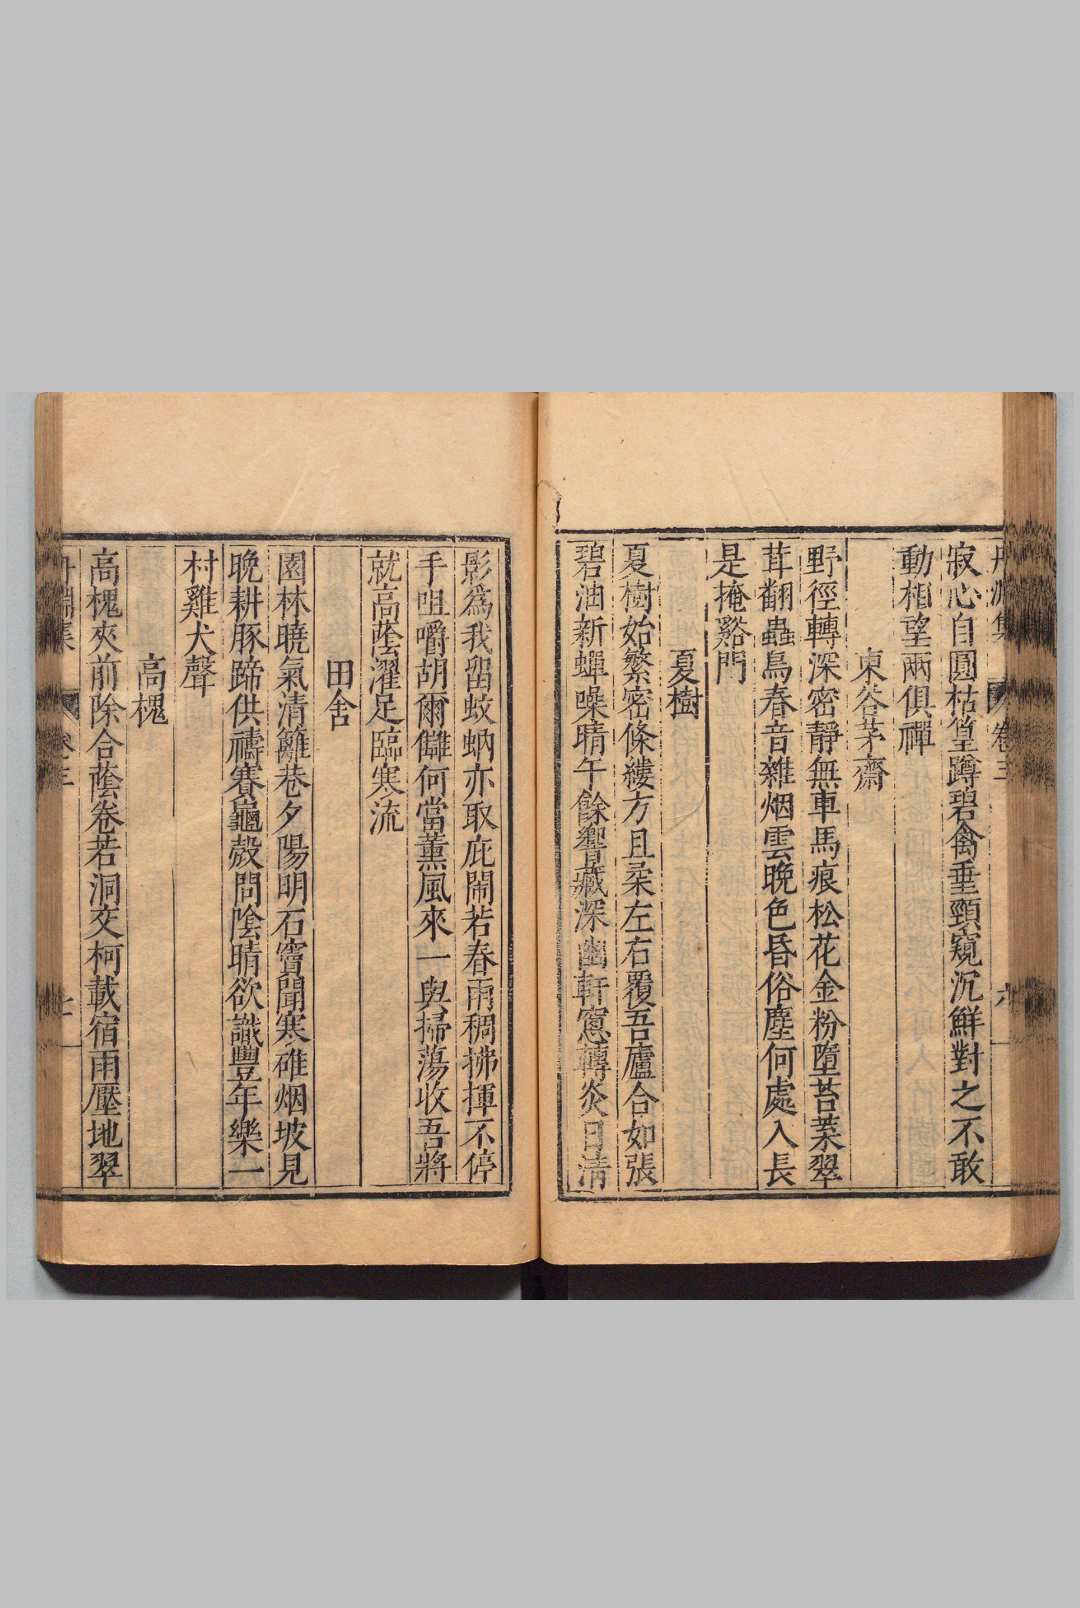 寂心自圓枯篁蹲碧禽垂頸窺沉鮮對之不敢
動相望兩俱禪
東谷茅齋
野徑轉深密靜無車馬痕松花金粉墮苔葉翠
茸翻蟲鳥春音雜烟雲晚色昏俗塵何處入長
是掩谿門
夏樹
夏樹始繁密條縷方且柔左右覆吾廬合如張
碧油新蟬噪晴午餘響藏深幽軒窻轉炎日清
影爲我留蚊蚋亦取庇鬧若春雨稠拂揮不停
手咀嚼胡爾讎何當薰風來一與掃蕩收吾將
就高蔭濯足臨寒流
田舍
園林曉氣清籬巷夕陽明石竇聞寒碓烟坡見
晚耕豚蹄供禱賽龜殼問陰晴欲識豐年樂一
村雞犬聲
高槐
高槐夾前除合蔭卷若洞交柯載宿雨壓地翠